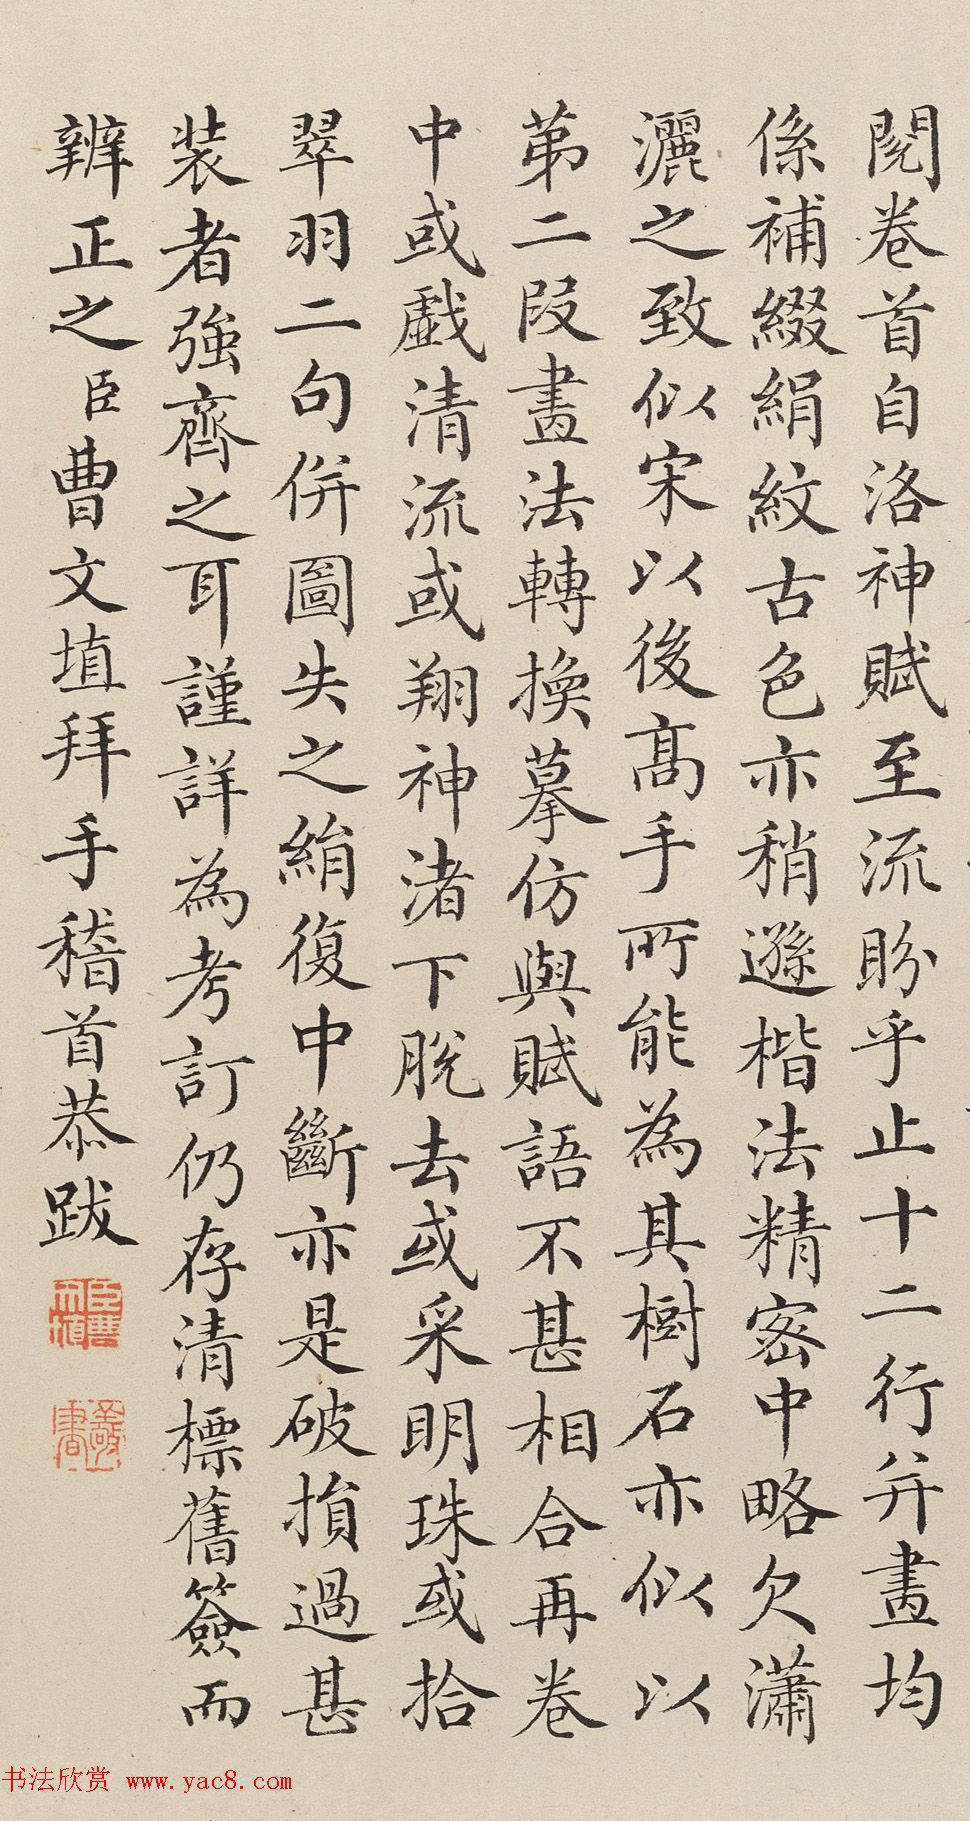 閱卷首自洛神賦至流盼乎止十二行并畫均
係補綴絹紋古色亦稍遜楷法精密中略欠瀟
灑之致似宋以後高手所能為其樹石亦似以
第二段畫法轉換摹仿與賦語不甚相合再卷
中或戲清流或翔神渚下脫去或采明珠或拾
翠羽二句併圖失之絹復中斷亦是破損過甚
裝者強齊之耳謹詳為考訂仍存清標舊簽而
辨正之臣曹文埴拜手稽首恭跋
书法欣赏 www.yac8.com